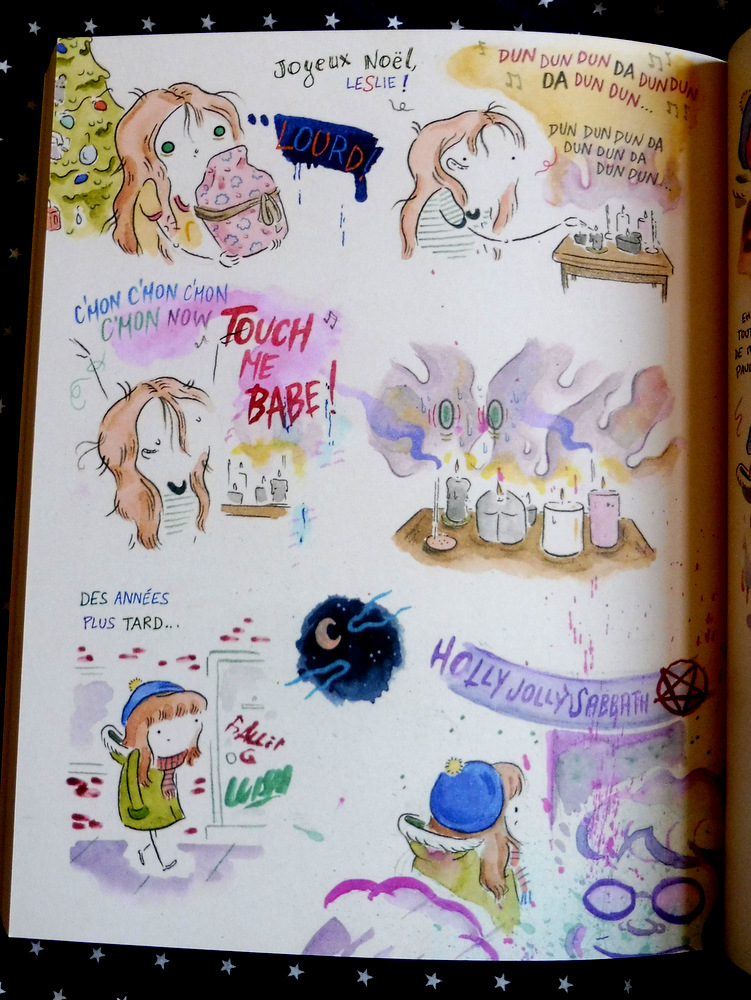 Joyeux Noël,
LESLIE !
LOURD!
DUN DUN DUN DA DUN DUN
DA DUN DUN...
DUN DUN DUN DA
DUN DUN DA
DUN DUN...
C'MON C'MON C'MON
C'MON NOW
TOUCH
ME
BABE!
DES ANNÉES
PLUS TARD...
HOLLY JOLLY SABBATH